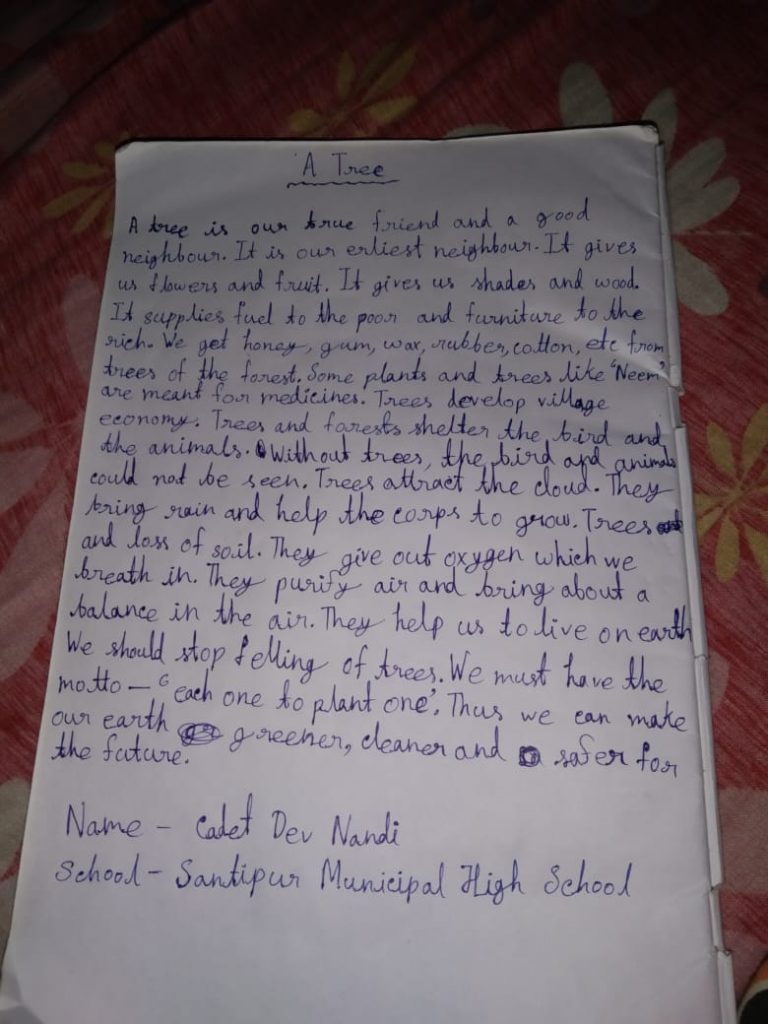 A Tree
A tree is our true friend and a good
neighbour. It is our erliest neighbour. It gives
us flowers and fruit. It gives us shades and wood.
It supplies fuel to the poor and furniture to the
rich. We get honey, gum, wax, rubber, cotton, etc from
trees of the forest. Some plants and trees like 'Neem'
are meant for medicines. Trees develop village
economy. Trees and forests shelter the bird and
the animals. Without trees, the bird and animals
could not be seen. Trees attract the cloud. They
bring rain and help the corps to grow. Trees
and loss of soil. They give out oxygen which we
breath in. They purify air and bring about a
balance in the air. They help us to live on earth
We should stop felling of trees. We must have the
motto – 'each one to plant one'. Thus we can make
our earth greener, cleaner and safer for
the future.
Name - Cadet Dev Nandi
School - Santipur Municipal High School